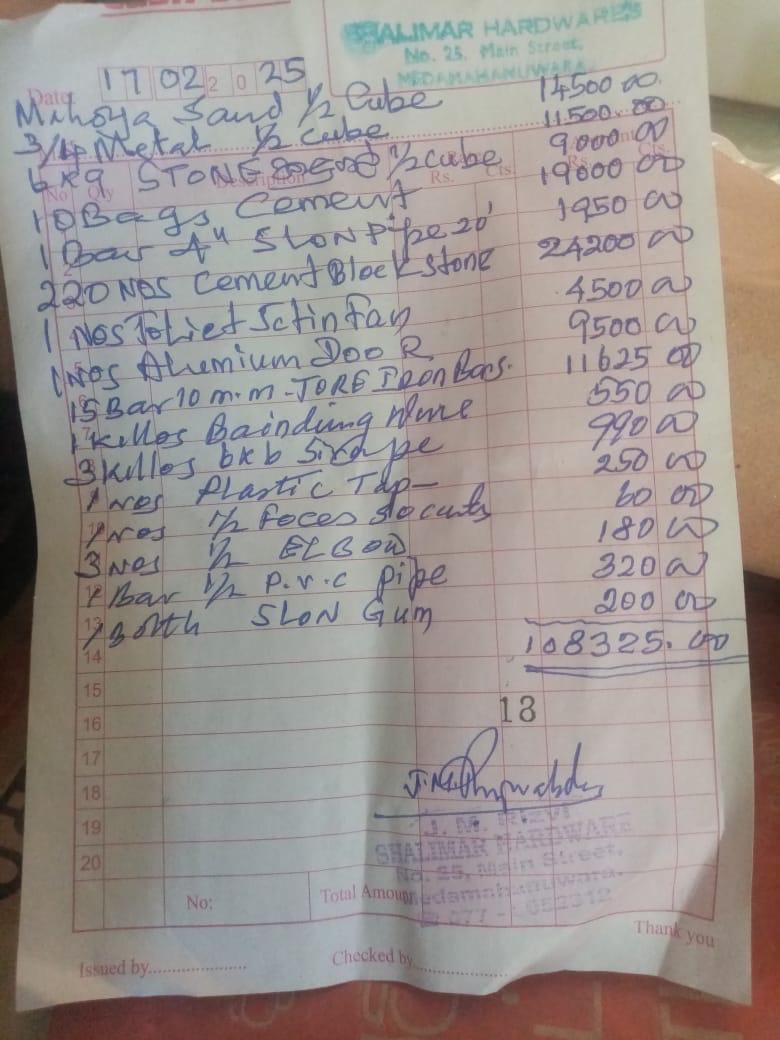 SHALIMAR HARDWARES
No. 25, Main Street,
MEDAMAHANUWARA.
Date: 17 02 2025
Mahoya Sand 1/2 Cube 14500 00
3/4 Metal 1/2 Cube 11500.00
6 kg STONE 1/2 cube 9000 00
10 Bags Cement 19000 00
1 Bar 4" SLON Pipe 20' 1950 00
220 Nos Cement Block Stone 24200 00
1 Nos Toliet Sctin Fan 4500 00
1 Nos Alumium DooR 9500 00
15 Bar 10 m.m - TORE IRon Bars. 11625 00
1 killos Bainding Wire 550 00
3 killos 6k6 990 00
1 nos Plastic Tap 250 00
1 nos 1/2 Foces Socuts 60 00
3 Nos 1/2 ELBow 180 00
1 Bar 1/2 P.v.c pipe 320 00
1 Botth SLON Gum 200 00
108325.00
No Qty Description Rs. Cts. Rs. Cts.
12
13
14
15
16
17
18
19
20
13
J. M. RIZVI
SHALIMAR HARDWARE
No. 25, Main Street,
Medamahanuwara.
No: Total Amount
Thank you
Issued by........................ Checked by........................